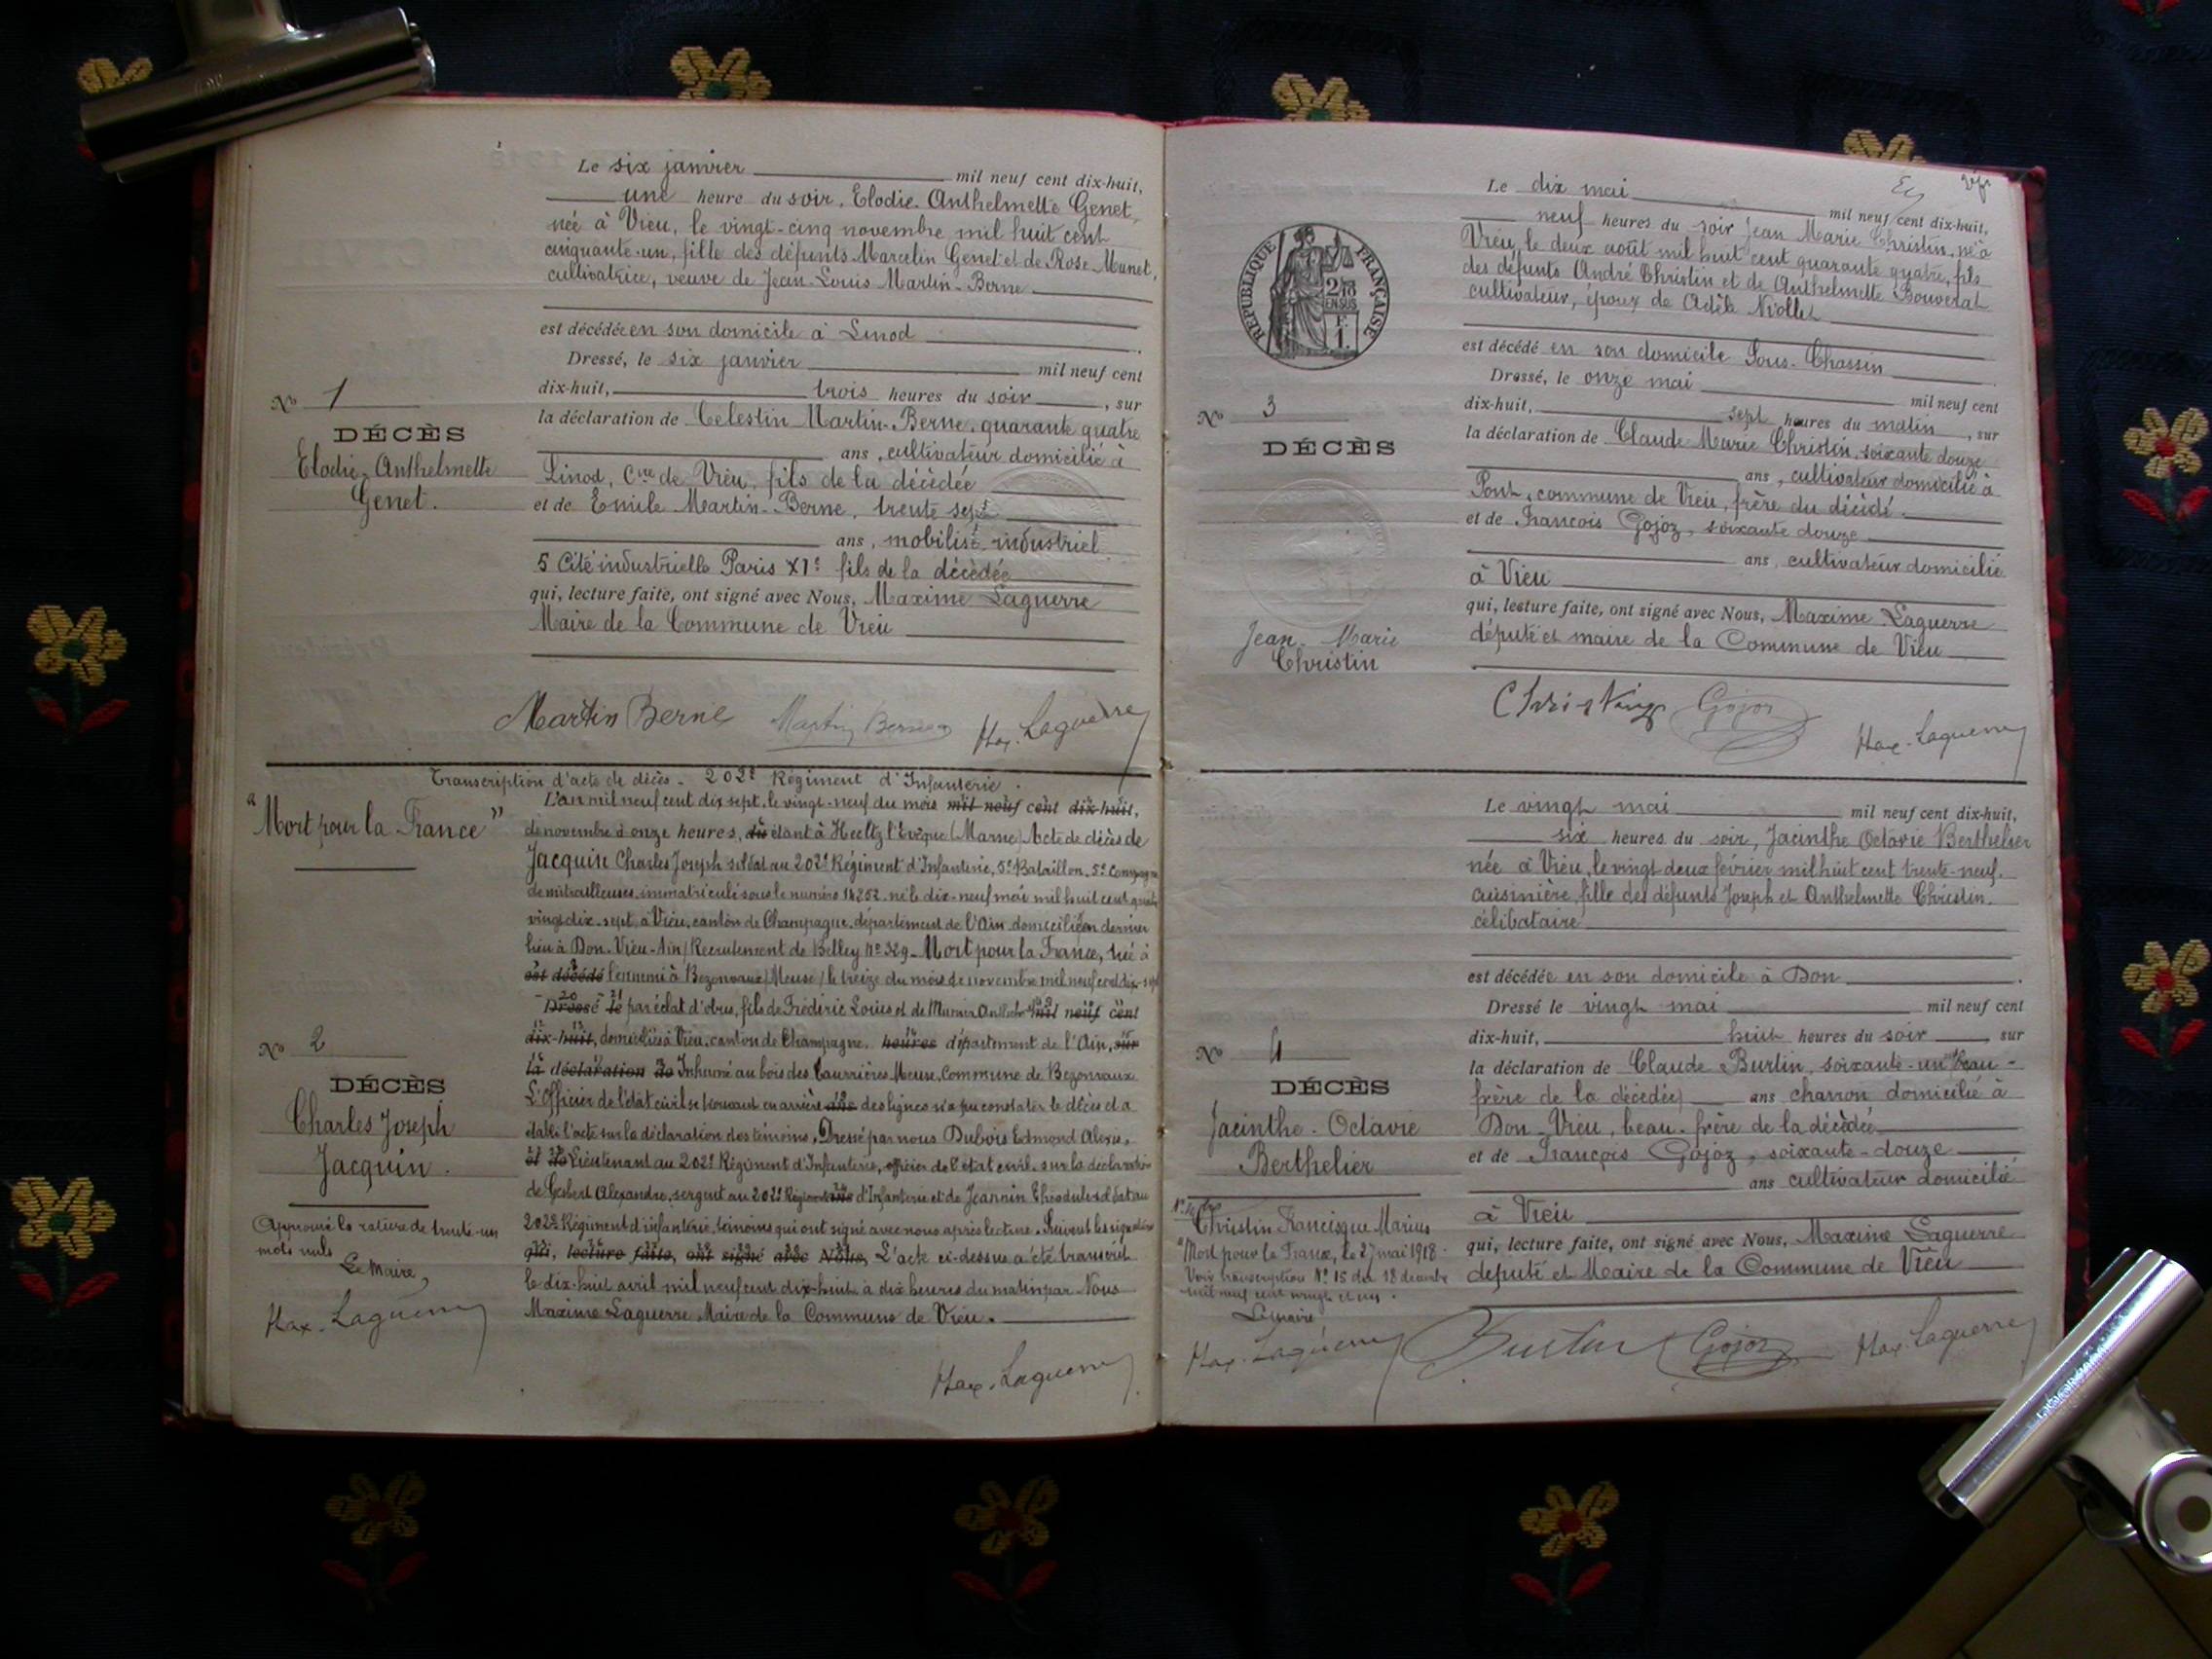 Le six janvier mil neuf cent dix-huit,
une heure du soir, Elodie Anthelmette Genet,
née à Vieu, le vingt-cinq novembre mil huit cent
cinquante-un, fille des défunts Marcelin Genet et de Rose Munet,
cultivatrice, veuve de Jean-Louis Martin-Berne
est décédée en son domicile à Linod
Dressé, le six janvier mil neuf cent
dix-huit, trois heures du soir, sur
la déclaration de Célestin Martin-Berne, quarante quatre
ans, cultivateur domicilié à
Linod, Cne de Vieu, fils de la décédée
et de Emile Martin-Berne, trente sept
ans, mobilisé industriel
5 Cité industrielle Paris XIe fils de la décédée
qui, lecture faite, ont signé avec Nous, Maxime Laguerre
Maire de la Commune de Vieu
No 1
DÉCÈS
Elodie-Anthelmette
Genet.
Martin Berne Martin Berne Max. Laguerre
Transcription d'acte de décès - 202e Régiment d'Infanterie.
"Mort pour la France"
L'an mil neuf cent dix sept, le vingt-neuf du mois mil neuf cent dix-huit,
de novembre à onze heures, du étant à Heiltz l'Evêque (Marne) Acte de décès de
Jacquin Charles Joseph soldat au 202e Régiment d'Infanterie, 5e Bataillon, 5e Compagnie
de mitrailleuses, immatriculé sous le numéro 14252, né le dix-neuf mai mil huit cent quatre
vingt dix-sept, à Vieu, canton de Champagne, département de l'Ain domicilié en dernier
lieu à Don-Vieu-Ain / Recrutement de Belley No 329 - Mort pour la France, tué à
est décédé l'ennemi à Bezonvaux / Meuse / le treize du mois de novembre mil neuf cent dix-sept
Dressé le par éclat d'obus, fils de Frédéric Louis et de mil neuf cent
dix-huit, domiciliés à Vieu, canton de Champagne, heures département de l'Ain, sur
la déclaration de Inhumé au bois des Caurrières Meuse, Commune de Bezonvaux
L'Officier de l'état civil se trouvant en arrière des lignes n'a pu constater le décès et a
établi l'acte sur la déclaration des témoins, Dressé par nous Dubois Edmond Alexis,
et de Lieutenant au 202e Régiment d'Infanterie, officier de l'état civil, sur la déclaration
de Alexandre, sergent au 202e Régiment d'Infanterie et de Jeannin Théodule soldat au
202e Régiment d'infanterie, témoins qui ont signé avec nous après lecture. Suivent les signatures
qui, lecture faite, ont signé avec Nous, L'acte ci-dessus a été transcrit
le dix-huit avril mil neuf cent dix-huit à dix heures du matin par Nous
Maxime Laguerre, Maire de la Commune de Vieu.
No 2
DÉCÈS
Charles Joseph
Jacquin.
Approuvé la rature de trente-un
mots nuls
Le Maire,
Max. Laguerre
Max. Laguerre
Le dix mai mil neuf cent dix-huit,
neuf heures du soir Jean Marie Christin, né à
Vieu, le deux août mil huit cent quarante quatre, fils
des défunts André Christin et de Anthelmette Bouverat
cultivateur, époux de Adèle Niollet
est décédé en son domicile Sous-Chassin
Dressé, le onze mai mil neuf cent
dix-huit, sept heures du matin, sur
la déclaration de Claude Marie Christin, soixante douze
ans, cultivateur domicilié à
Pont, commune de Vieu, frère du décédé
et de François Gojoz, soixante douze
ans, cultivateur domicilié
à Vieu
qui, lecture faite, ont signé avec Nous, Maxime Laguerre
député et maire de la Commune de Vieu
RÉPUBLIQUE FRANÇAISE
No 3
DÉCÈS
Jean-Marie
Christin
Christin Gojoz Max. Laguerre
Le vingt mai mil neuf cent dix-huit,
six heures du soir, Jacinthe Octavie Berthelier
née à Vieu, le vingt deux février mil huit cent trente-neuf,
cuisinière, fille des défunts Joseph et Anthelmette Christin,
célibataire
est décédée en son domicile à Don
Dressé le vingt mai mil neuf cent
dix-huit, huit heures du soir, sur
la déclaration de Claude Burlin, soixante-un beau-
frère de la décédée ans charron domicilié à
Don-Vieu, beau-frère de la décédée
et de François Gojoz, soixante-douze
ans cultivateur domicilié
à Vieu
qui, lecture faite, ont signé avec Nous, Maxime Laguerre
député et Maire de la Commune de Vieu
No 4
DÉCÈS
Jacinthe-Octavie
Berthelier
Christin Francisque Marius
"Mort pour la France, le 27 mai 1918.
Voir transcription No 15 du 18 décembre
mil neuf cent vingt et un.
Le maire
Max. Laguerre Burlin Gojoz Max. Laguerre